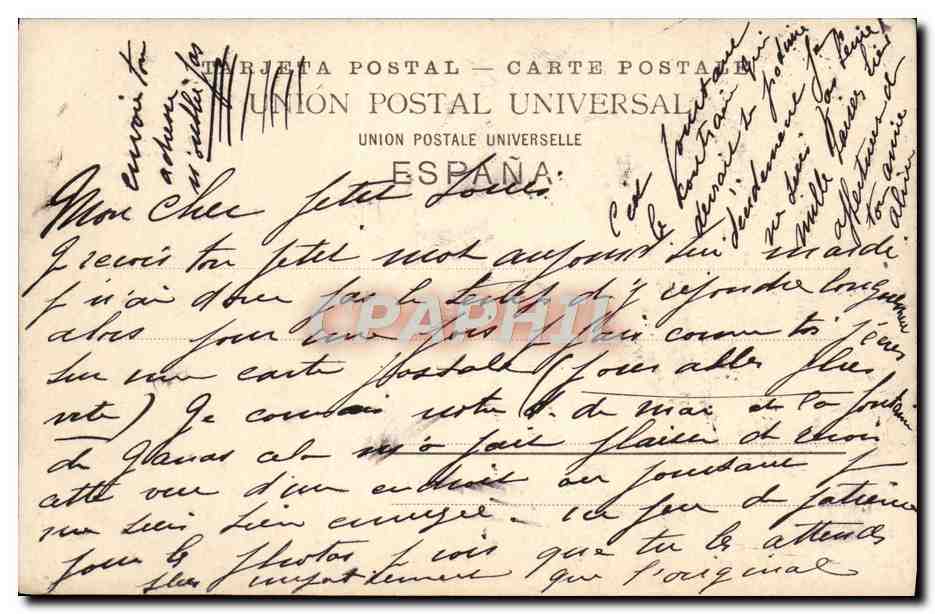 TARJETA POSTAL — CARTE POSTALE
UNIÓN POSTAL UNIVERSAL
UNION POSTALE UNIVERSELLE
ESPAÑA
envoie ton
adresse
n'oublie pas
Mon cher petit Louis
Je reçois ton petit mot aujourd'hui mardi
je n'ai donc pas le temps d'y répondre longuement
alors pour une fois je fais comme toi j'écris
sur une carte postale (pour aller plus
vite) Je connais notre de mai de la fontaine
de cela m'a fait plaisir de revoir
cette vue d'un endroit où pourtant je
me suis bien ennuyée. un peu de patience
pour les photos je vois que tu les attends
plus impatiemment que l'original
C'est pourtant
le contraire qui
devrait se produire
évidemment je
ne suis pas
mille baisers bien
affectueux de
ton amie
CPAPHIL